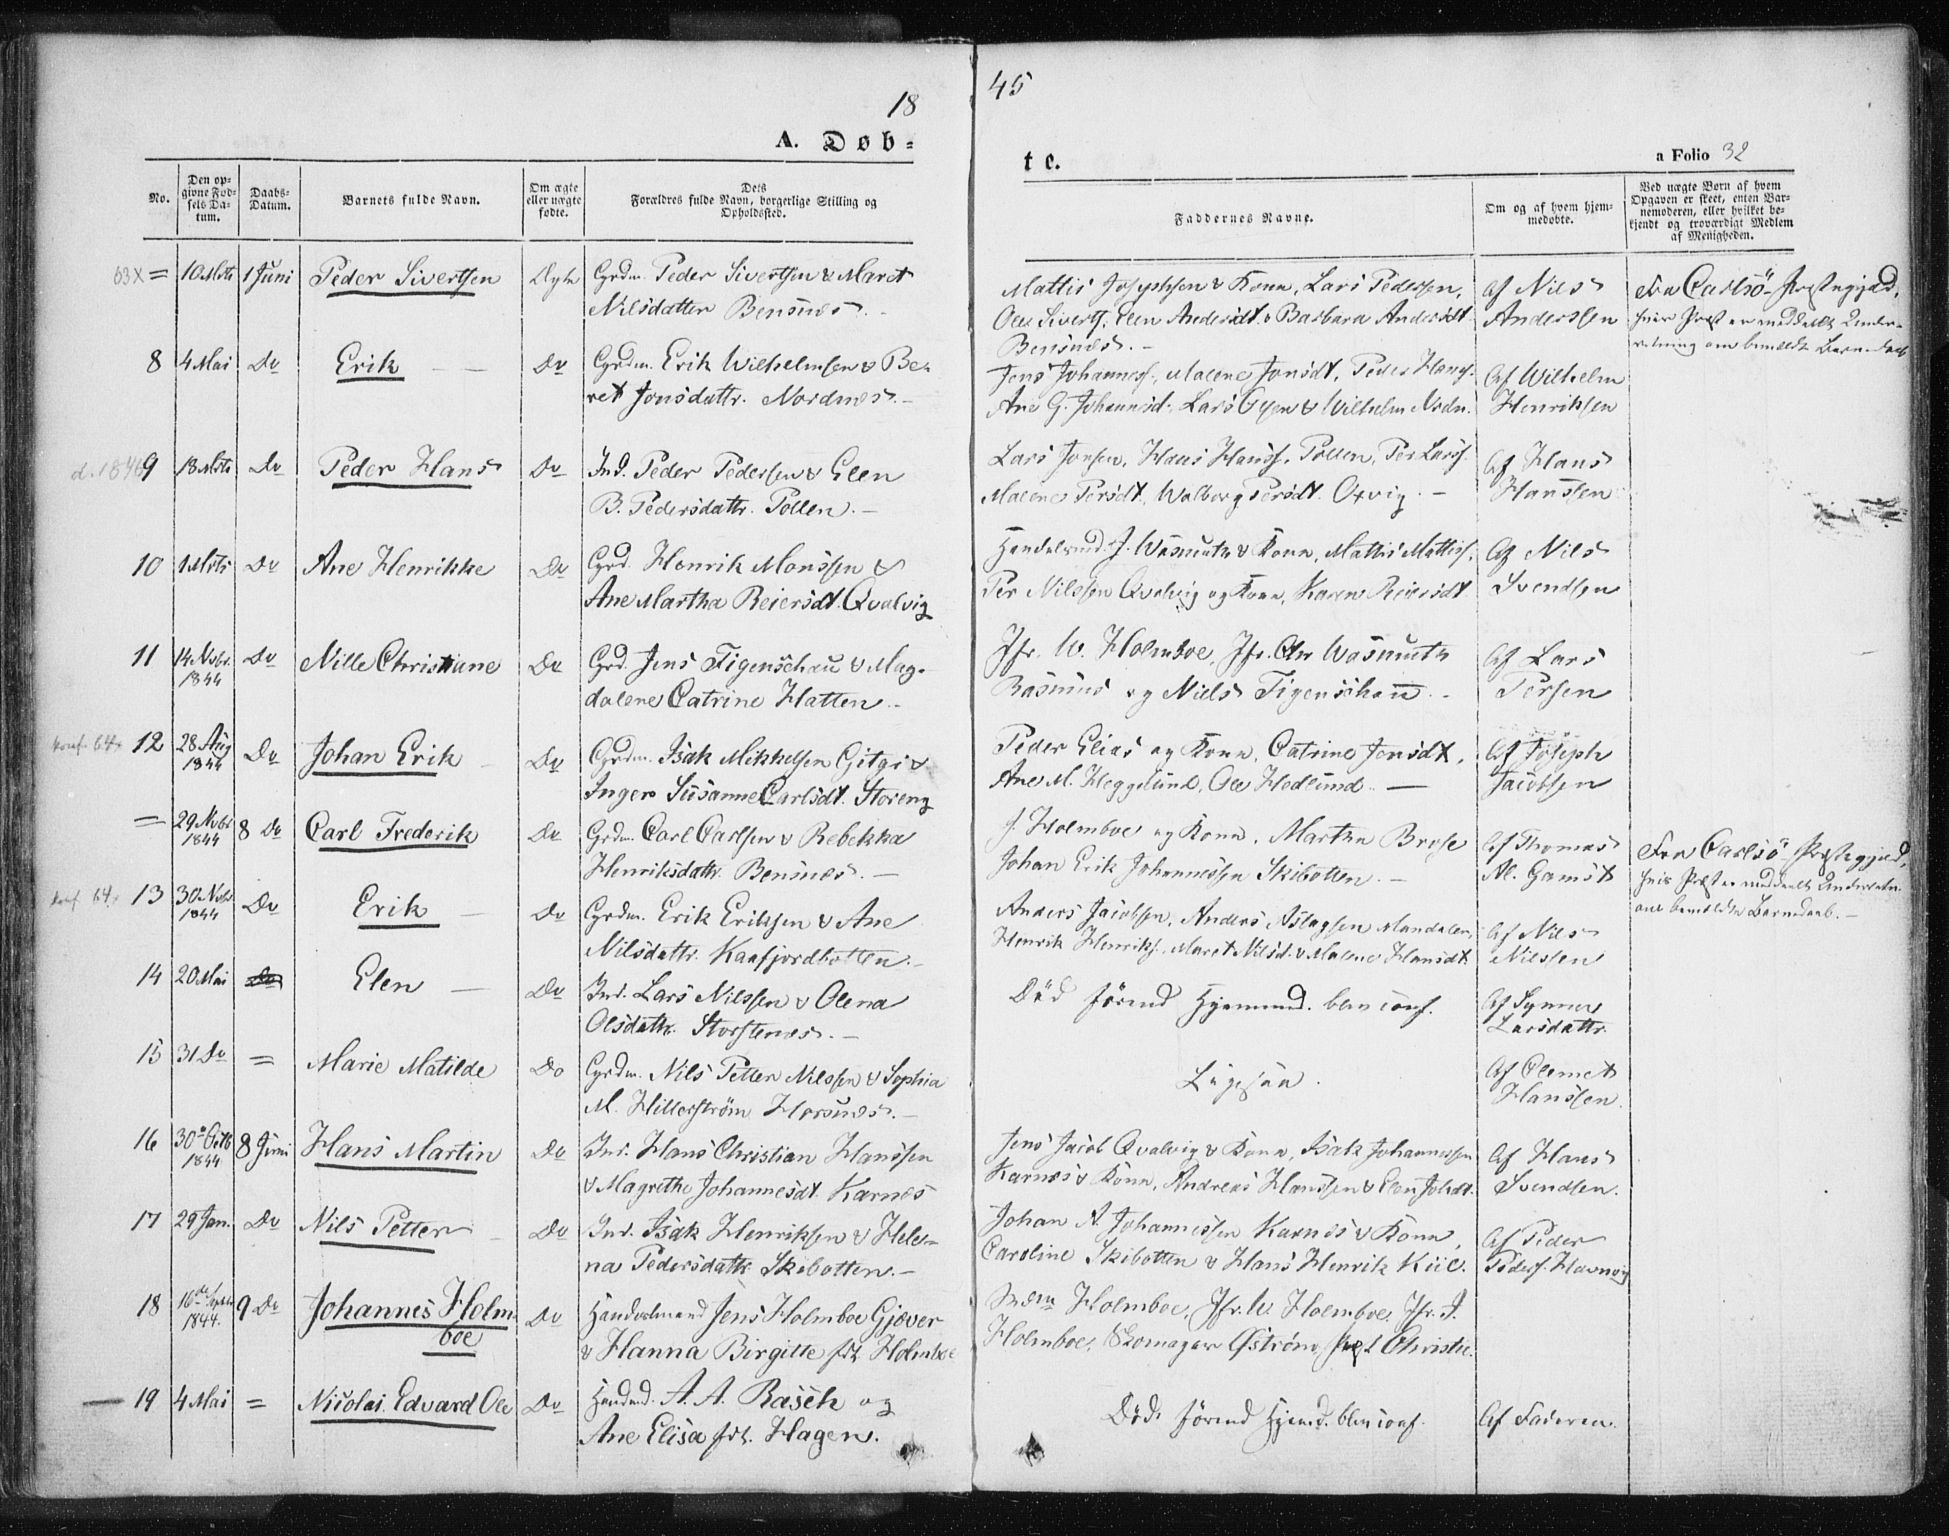 18
45
A. Døb-
te.
a Folio 32
No.
Den op-
givne Fød-
sels Da-
tum.
Daabs-
Datum.
Barnets fulde Navn.
Om ægte
eller uægte
fødte.
Dets
Forældres fulde Navn, borgerlige Stilling og
Opholdssted.
Faddernes Navne.
Om og af hvem hjem-
medøbte.
Ved uægte Børn af hvem
Opgaven er skeet, enten Bar-
nemoderen, eller hvilket be-
kjendt og troværdigt Medlem
af Menigheden.
= 10 Mrts 1 Juni Peder Sivertsen Ægte Grdm. Peder Sivertsen & Maret
Nilsdatter Bensnes.
Mattis Josephsen & Kone, Lars Pedersen,
Ole Siverts, Elen Andersdt. & Barbara Andersdt.
Bensnes.
Af Nils
Anderssen
Fra Carlsö Præstegjed,
8 4 Mai Do Erik Do Grdm. Erik Wilhelmsen & Be-
ret Jonsdattr. Nordnes.
Jens Johanness., Malene Jonsdt, Peder Hans.
Ane G. Johannsd., Lars & Wilhelm Nrdn.
Af Wilhelm
Henriksen
d. 1846 9 18 Mrts Do Peder Hans Do Ind. Peder Pedersen & Elen
B. Pedersdattr. Pollen.
Lars Jonsen, Hans Hanss. Pollen, Per Larss.
Malene Persdt, Walborg Persdt. Oxvig.
Af Hans
Hanssen
10 1 Mrts Do Ane Henrikke Do Grd. Henrik Monssen &
Ane Martha Reiersdt. Qvalvig
Handelsmd. J. Wasmuth & Kone, Mattis Mattiss.
Per Nilssen Qvalvig og Kone, Karen Reiersdt
Af Nils
Svendsen
11 14 Nvbr. 1844 Do Nille Christiane Do Grd. Jens Figenschau & Mag-
dalene Catrine Hatten.
Jfr. W. Holmboe, Jfr. Wasmuth
Rasmus og Niels Figenschau.
Af Lars
Persen
konf. 64. 12 28 Aug 1844 Do Johan Erik Do Grdm. Isak Mikkelsen Gitgi &
Inger Susanne Carlsdt. Storeng
Peder Elias og Kone, Catrine Jensdt,
Ane M. Heggelund, Ole Hedlund.
Af Joseph
Jacobsen
= 29 Nvbr 1844 8 Do Carl Frederik Do Grdm. Carl Carlsen & Rebekka
Henriksdattr. Bensnes.
J. Holmboe og Kone, Martha Bryse
Johan Erik Johannessen Skibotten.
Af Thomas
Al. Gamst
Fra Carlsö Præstegjed,
konf. 64. 13 30 Nvbr 1844 Do Erik Do Grdm. Erik Eriksen & Ane
Nilsdattr. Kaafjordbotten.
Anders Jacobsen, Anders Aslagsen Mandalen,
Henrik Henriks., Maret Nilsd. & Malene Hansdt.
Af Nils
Nilssen
14 20 Mai Do Elen Do Ind. Lars Nilssen & Olena
Olsdattr. Storstenes.
Död förend Hjemmed. blev conf.
Af Synner
Larsdattr.
15 31 Do = Marie Matilde Do Grdm. Nils Petter Nilssen & Sophia
M. Hillerström Horsnes.
Ligesaa.
Af Clemet
Hanssen.
16 30 Octb 1844 8 Juni Hans Martin Do Ind. Hans Christian Hanssen
& Magrethe Johannesdt. Karnes
Jens Jacob Qvalvig & Kone, Isak Johannessen
Karnes & Kone, Andreas Hanssen & Elen Johdt.
Af Hans
Svendsen.
17 29 Jan. Do Nils Petter Do Ind. Isak Henriksen & Hele-
na Pedersdattr. Skibotten.
Johan A. Johannessen Karnes & Kone,
Caroline Skibotten & Hans Henrik Kiil.
Af Peder
Peders. Havnvig
18 16de Septbr 1844. 9 Do Johannes Holm-
boe Do Handelsmand Jens Holmboe Gjæver
& Hanna Birgitte fød. Holmboe
Mdm Holmboe, Jfr. W. Holmboe, Jfr. J.
Holmboe, Skomager Østrøm, Præst Christie.
19 4 Mai = Nicolai Edvard Ole Do Handmd. A. A. Rasch og
Ane Elisa fød. Hagen.
Död förend Hjemd. blev conf.
Af Faderen.